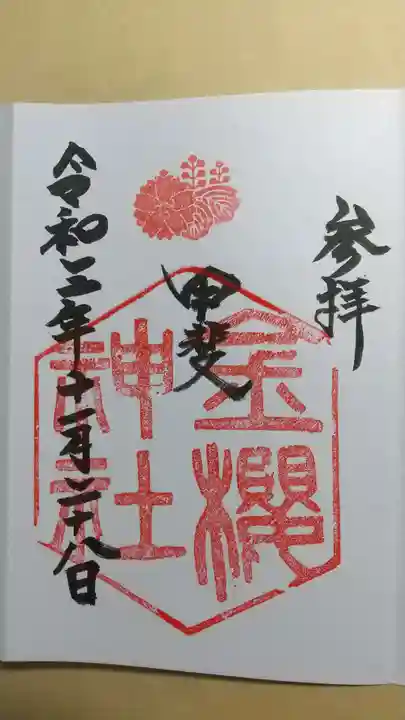 参拝
甲斐
金櫻
神社
令和二年十一月二十八日